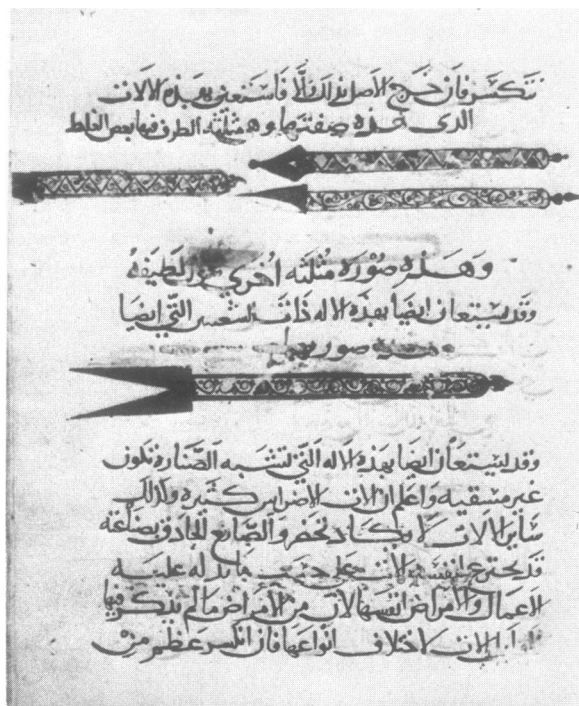 تنكسر فان خرج الاصل بذلك والا فاستعن بهذه الالات
الذى هذه صفتها وهى مثلثه الطرف فيها بعض الغلظ
وهذه صورة مثلثه اخرى لطيفه
وقد يستعان ايضا بهذه الاله ذات الشعبتين التى ايضا
هذه صورتها
وقد يستعان ايضا بهذه الاله التى تشبه الصنارة تكون
غير مسقيه واعلم ان الات الاضراس كثيرة وكذلك
سائر الالات لا تكاد تحصر والصانع الحاذق بصناعته
قد يخترع لنفسه الات على حسب ما تدله عليه
الاعمال والامراض انفسها لان من الامراض ما لم تذكر فيها
الالات لاختلاف انواعها فان انكسر عظم من